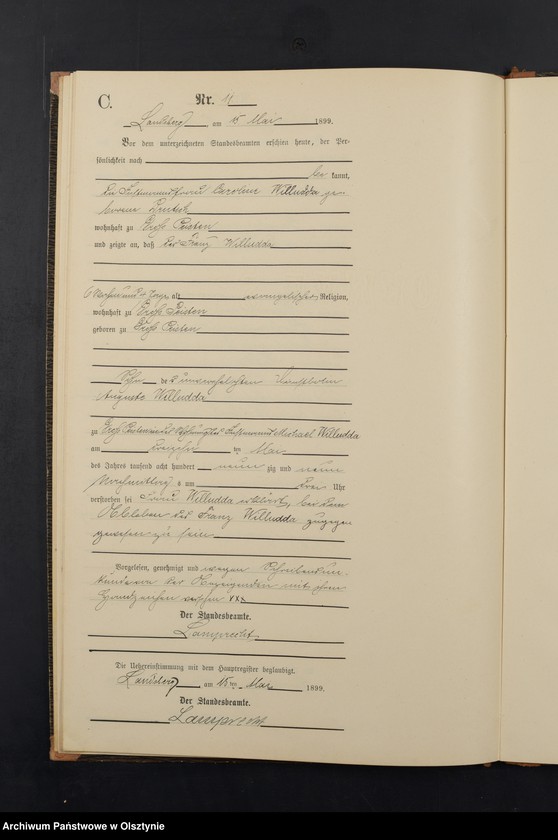 C.
Nr. 11
Landsberg am 15 Mai 1899.
Vor dem unterzeichneten Standesbeamten erschien heute, der Per-
sönlichkeit nach
be kannt,
die Frau Caroline Willudda ge-
borene
wohnhaft zu Groß Peisten
und zeigte an, daß der Franz Willudda
6 Wochen und 4 Tage alt evangelischer Religion,
wohnhaft zu Groß Peisten
geboren zu Groß Peisten
Sohn des unverehelichten
Auguste Willudda
zu Groß Peisten in der Wohnung des Michael Willudda
am ten Mai
des Jahres tausend acht hundert neun zig und neun
Nachmittags um drei Uhr
verstorben sei Frau Willudda erklärt, bei dem
Ableben des Franz Willudda zugegen
gewesen zu sein
Vorgelesen, genehmigt und wegen Schreibensun-
kunde von der Anzeigenden mit ihrem
Handzeichen versehen xxx
Der Standesbeamte.
Lamprecht
Die Uebereinstimmung mit dem Hauptregister beglaubigt.
Landsberg am 15ten Mai 1899.
Der Standesbeamte.
Lamprecht
Archiwum Państwowe w Olsztynie